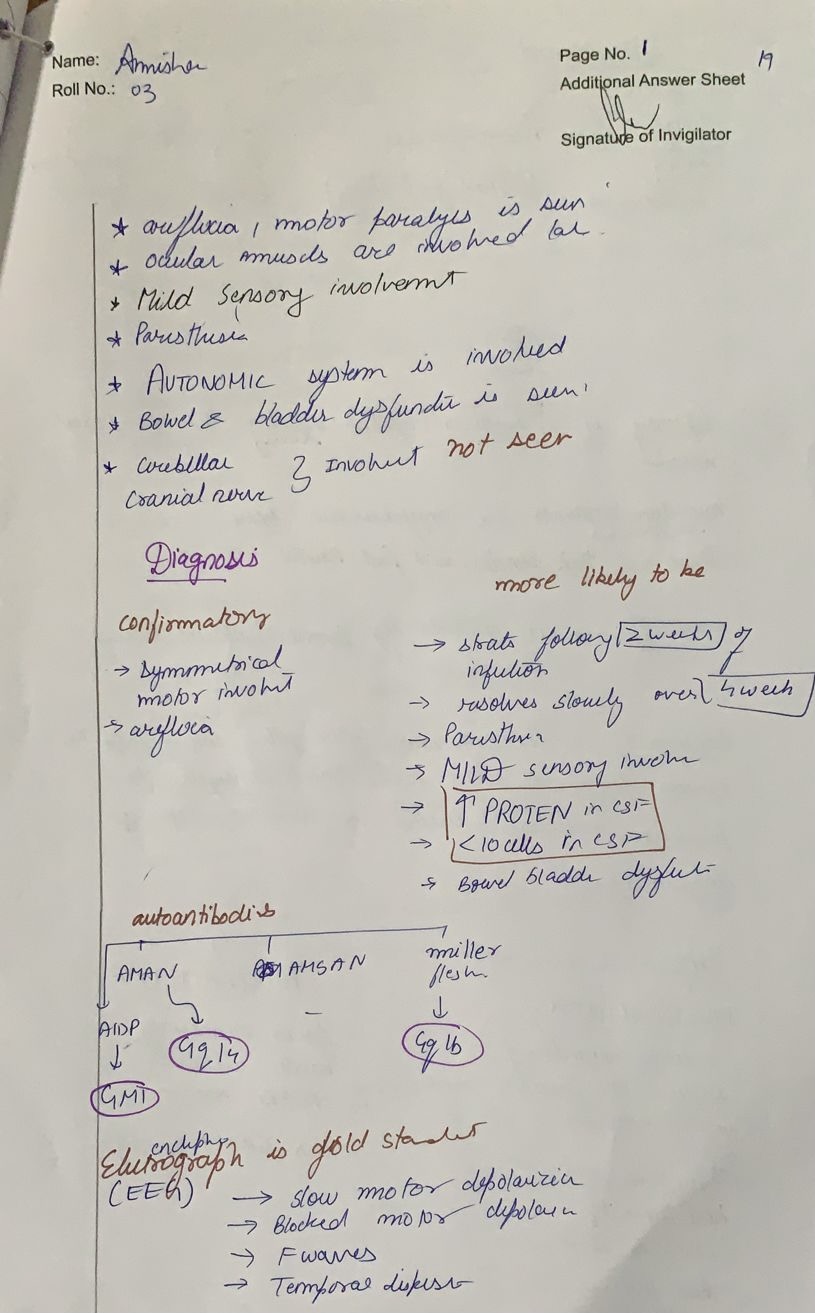 Name: Amisha
Roll No.: 03
Page No. 1
19
Additional Answer Sheet
Signature of Invigilator
* areflexia, motor paralyis is seen
* ocular muscls are involved
* Mild sensory involvemnt
* Paresthesia
* AUTONOMIC system is involved
* Bowel & bladder dysfunctio is seen
* cerebllar
cranial nerve } Involvent not seen
Diagnosis
confirmatory
→ symmetrical
motor involvt
→ areflexia
more likely to be
→ strats following 2 weeks of
infection
→ resolves slowly over 4 week
→ Paresthesia
→ MILD sensory involve
→ ↑ PROTEN in CSF
→ <10 cells in CSF
→ Bowel bladder dysfunt
autoantibodies
AMAN
AMSAN
miller
fish
AIDP
–
Gq1b
GM1
enceph
is gold standard
(EEG)
→ slow motor depolarizin
→ Blocked motor depolarin
→ F waves
→ Temporal dispersi